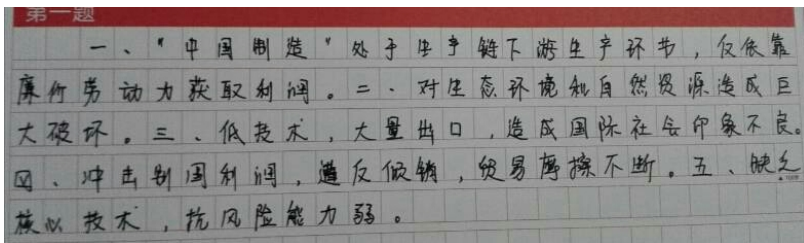 第一题
一、"中国制造"处于生产链下游生产环节，仅依靠
廉价劳动力获取利润。二、对生态环境和自然资源造成巨
大破坏。三、低技术，大量出口，造成国际社会印象不良。
四、冲击别国利润，遭反倾销，贸易摩擦不断。五、缺乏
核心技术，抗风险能力弱。